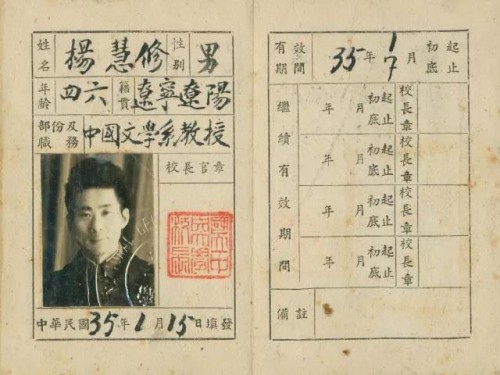 姓名 楊慧修 性別 男
年齡 四六 籍貫 遼寧遼陽
部份及職務 中國文學系教授
校長官章
國立中央大學校長
中華民國35年1月15日填發
有效期間 35年 1/7 月 初起底止
繼續有效期間
年 月 初起底止 校長章
年 月 初起底止 校長章
年 月 初起底止 校長章
年 月 初起底止 校長章
備註